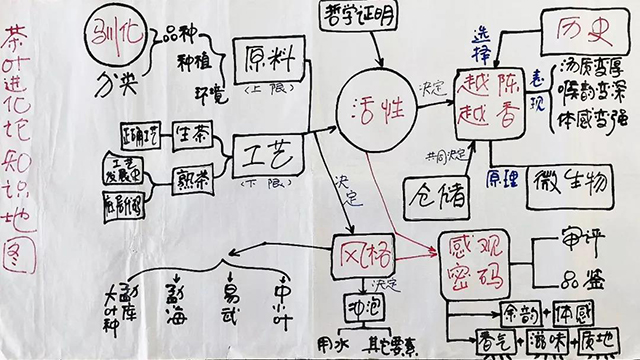 茶叶进化论知识地图
驯化
分类
品种
种植
环境
原料
(上限)
哲学证明
活性
决定
选择
历史
越陈
越香
表现
汤质变厚
喉韵变深
体感变强
正确工艺
生茶
工艺
发展史
熟茶
底层代码
工艺
(下限)
决定
共同决定
仓储
原理
微生物
风格
感观
密码
审评
品鉴
勐库大叶种
勐海
易武
中小叶
决定
冲泡
用水
其它要素
余韵+体感
香气+滋味+质地